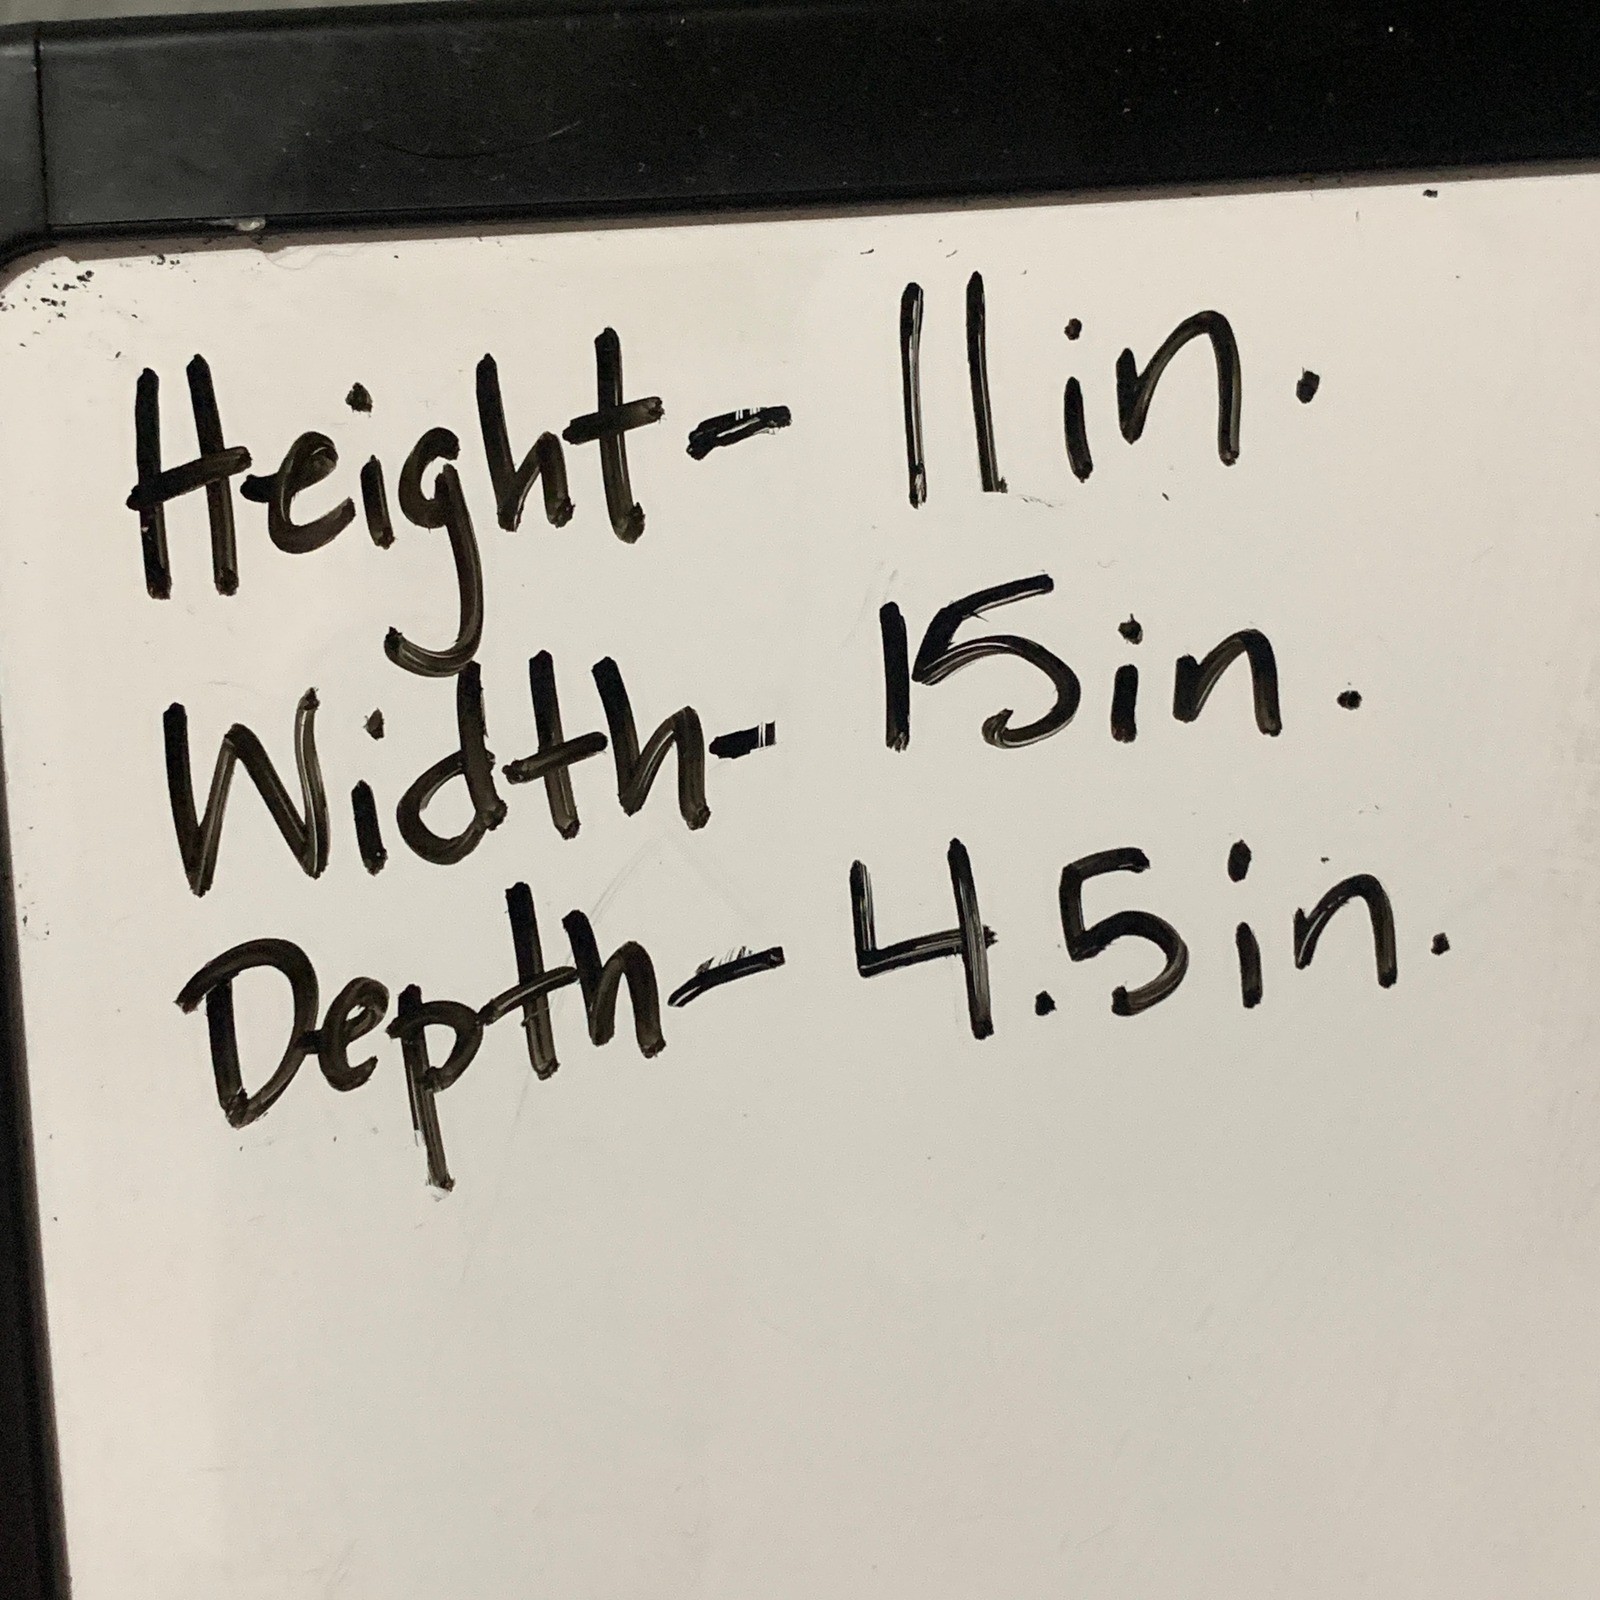 Height- 11in.
Width- 15in.
Depth- 4.5in.